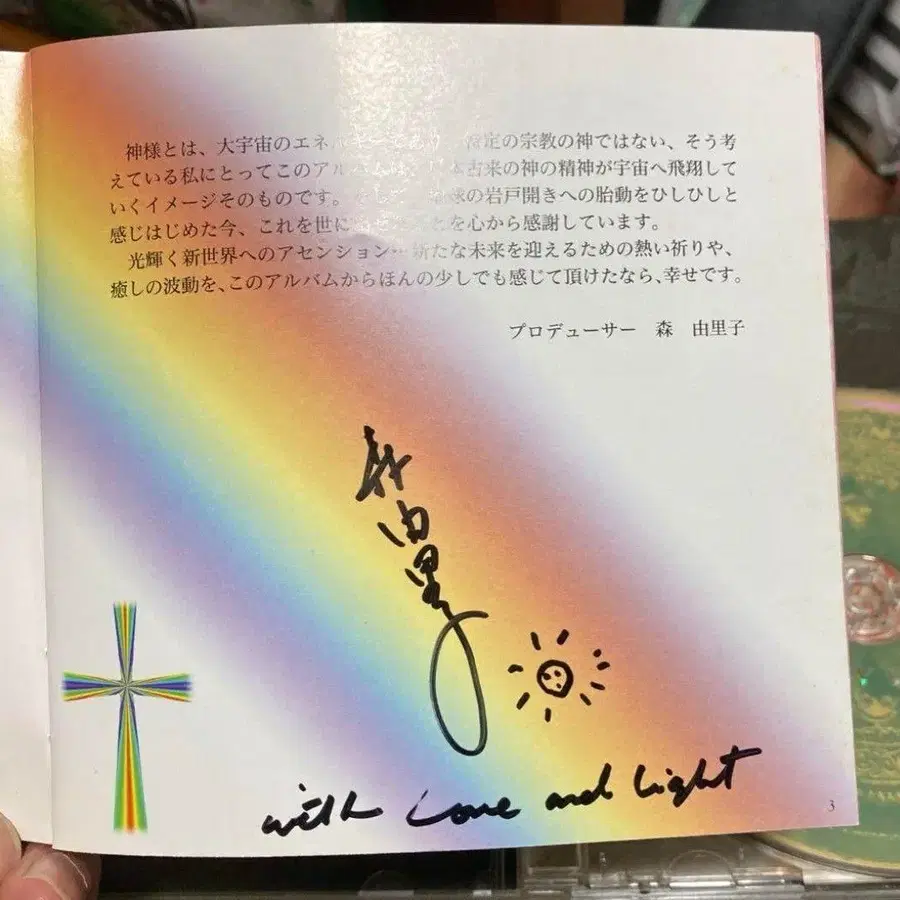 神様とは、大宇宙のエネル 特定の宗教の神ではない、そう考
えている私にとってこのアルバム 本古来の神の精神が宇宙へ飛翔して
いくイメージそのものです。 地球の岩戸開きへの胎動をひしひしと
感じはじめた今、これを世に とを心から感謝しています。
光輝く新世界へのアセンション…新たな未来を迎えるための熱い祈りや、
癒しの波動を、このアルバムからほんの少しでも感じて頂けたなら、幸せです。
プロデューサー 森 由里子
森由里子
with Love and Light
3